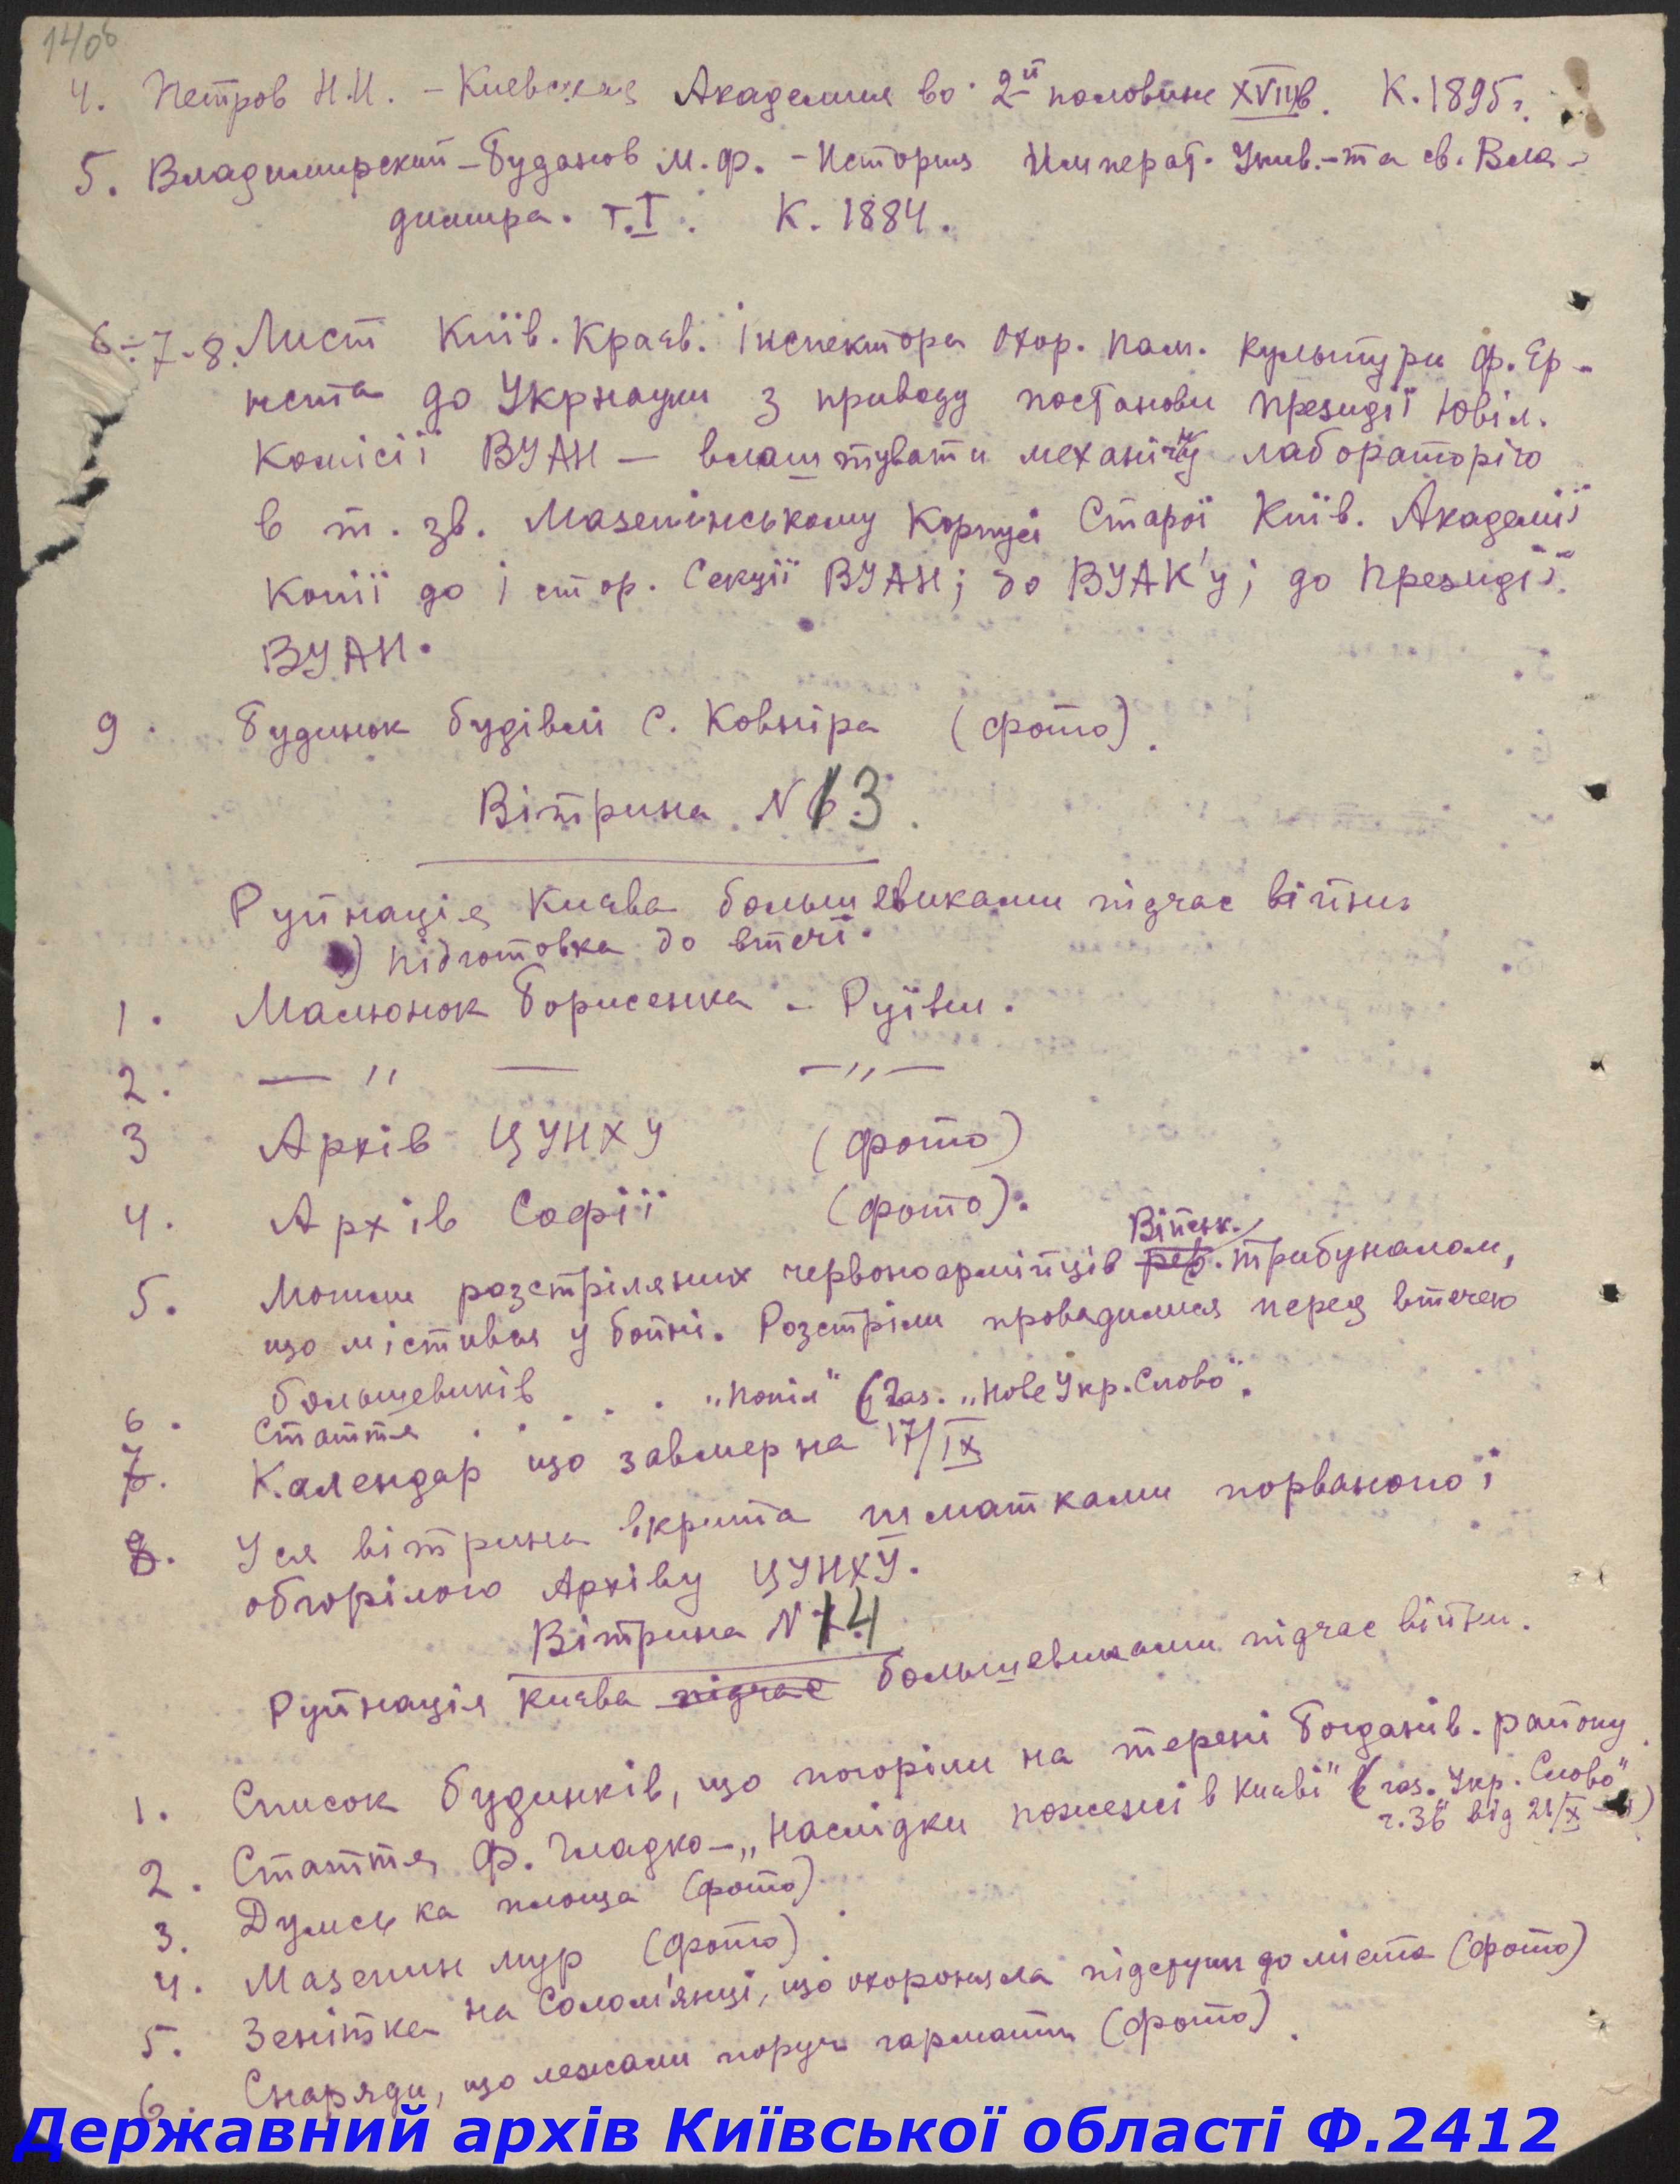 140б
4. Петров Н.И. – Киевская Академия во 2й половине XVIIIв. К. 1895г.
5. Владимирский–Буданов М.Ф. – История Императ. Унив.–та св. Вла-
димира. т. I. К. 1884.
6–7–8. Лист Київ. Краєв. Інспектора Охор. Пам. Культури Ф. Ер-
нста до Укрнауки з приводу постанови Президії Ювіл.
Комісії ВУАН – влаштувати механічну лабораторію
в т. зв. Мазепинському Корпусі Старої Київ. Академії
Копії до істор. Секції ВУАН; до ВУАК'у; до Президії
ВУАН.
9. Будинок будівлі С. Ковніра (фото).
Вітрина N 13.
Руйнація Києва большевиками підчас війни
) підготовка до втечі.
1. Малюнок Борисенка – Руїни.
2. — " — — " —
3 Архів ЦУНХУ (фото)
4. Архів Софії (фото).
Військ.
5. Могили розстріляних червоноармійців рев. трибуналом,
що містився у бойні. Розстріли провадилися перед втечею
большевиків
6. Стаття . . . . . „Попіл" (газ. „Нове Укр. Слово".
7. Календар що завмер на 17/IX
8. Уся вітрина вкрита шматками порваного і
обгорілого Архіву ЦУНХУ.
Вітрина N 14
Руйнація Києва підчас большевиками підчас війни.
1. Список будинків, що погоріли на терені Богданів. району.
2. Стаття Ф. Гладко – „Наслідки пожежі в Києві" (газ. „Укр. Слово"
ч. 36 від 21/X –41)
3. Думська площа (фото)
4. Мазепин мур (фото).
5. Зенітка на Солом'янці, що охороняла підступи до міста (фото)
6. Снаряди, що лежали поруч гармати (фото).
Державний архів Київської області Ф.2412